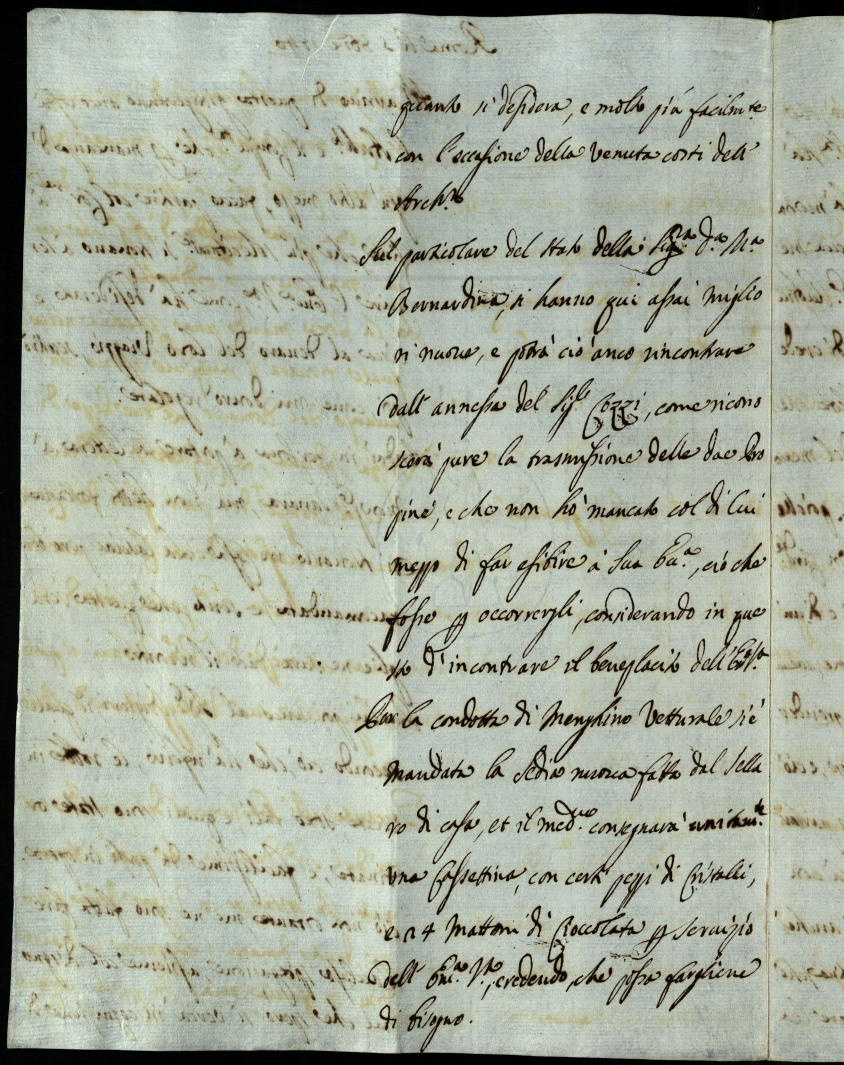 quanto si desidera, e molto più facilmte
con l'occasione della venuta costì dell'
Archto
Sul particolare del stato della Sigra Da Ma
Bernardina, si hanno qui assai miglio
ri nuove, e potrà ciò anco rincontrare
dall'annessa del Sigr Cozzi, come ricono
scerà pure la trasmissione delle due Pro
pine, e che non hò mancato col di lui
mezzo di far esibire à Sua Ema, ciò che
fosse p occorrergli, considerando in que
sto d'incontrare il beneplacito dell'
Per la condotta di Menghino Vetturale si è
mandata la Sedia nuova fatta dal Sella
ro di casa, et il medmo consegnarà unitamte
una Cassettina, con certi pezzi di Cristalli,
e 24 Mattoni di Cioccolata p servizio
dell'Emza Va, credendo, che possa fargliene
di bisogno.